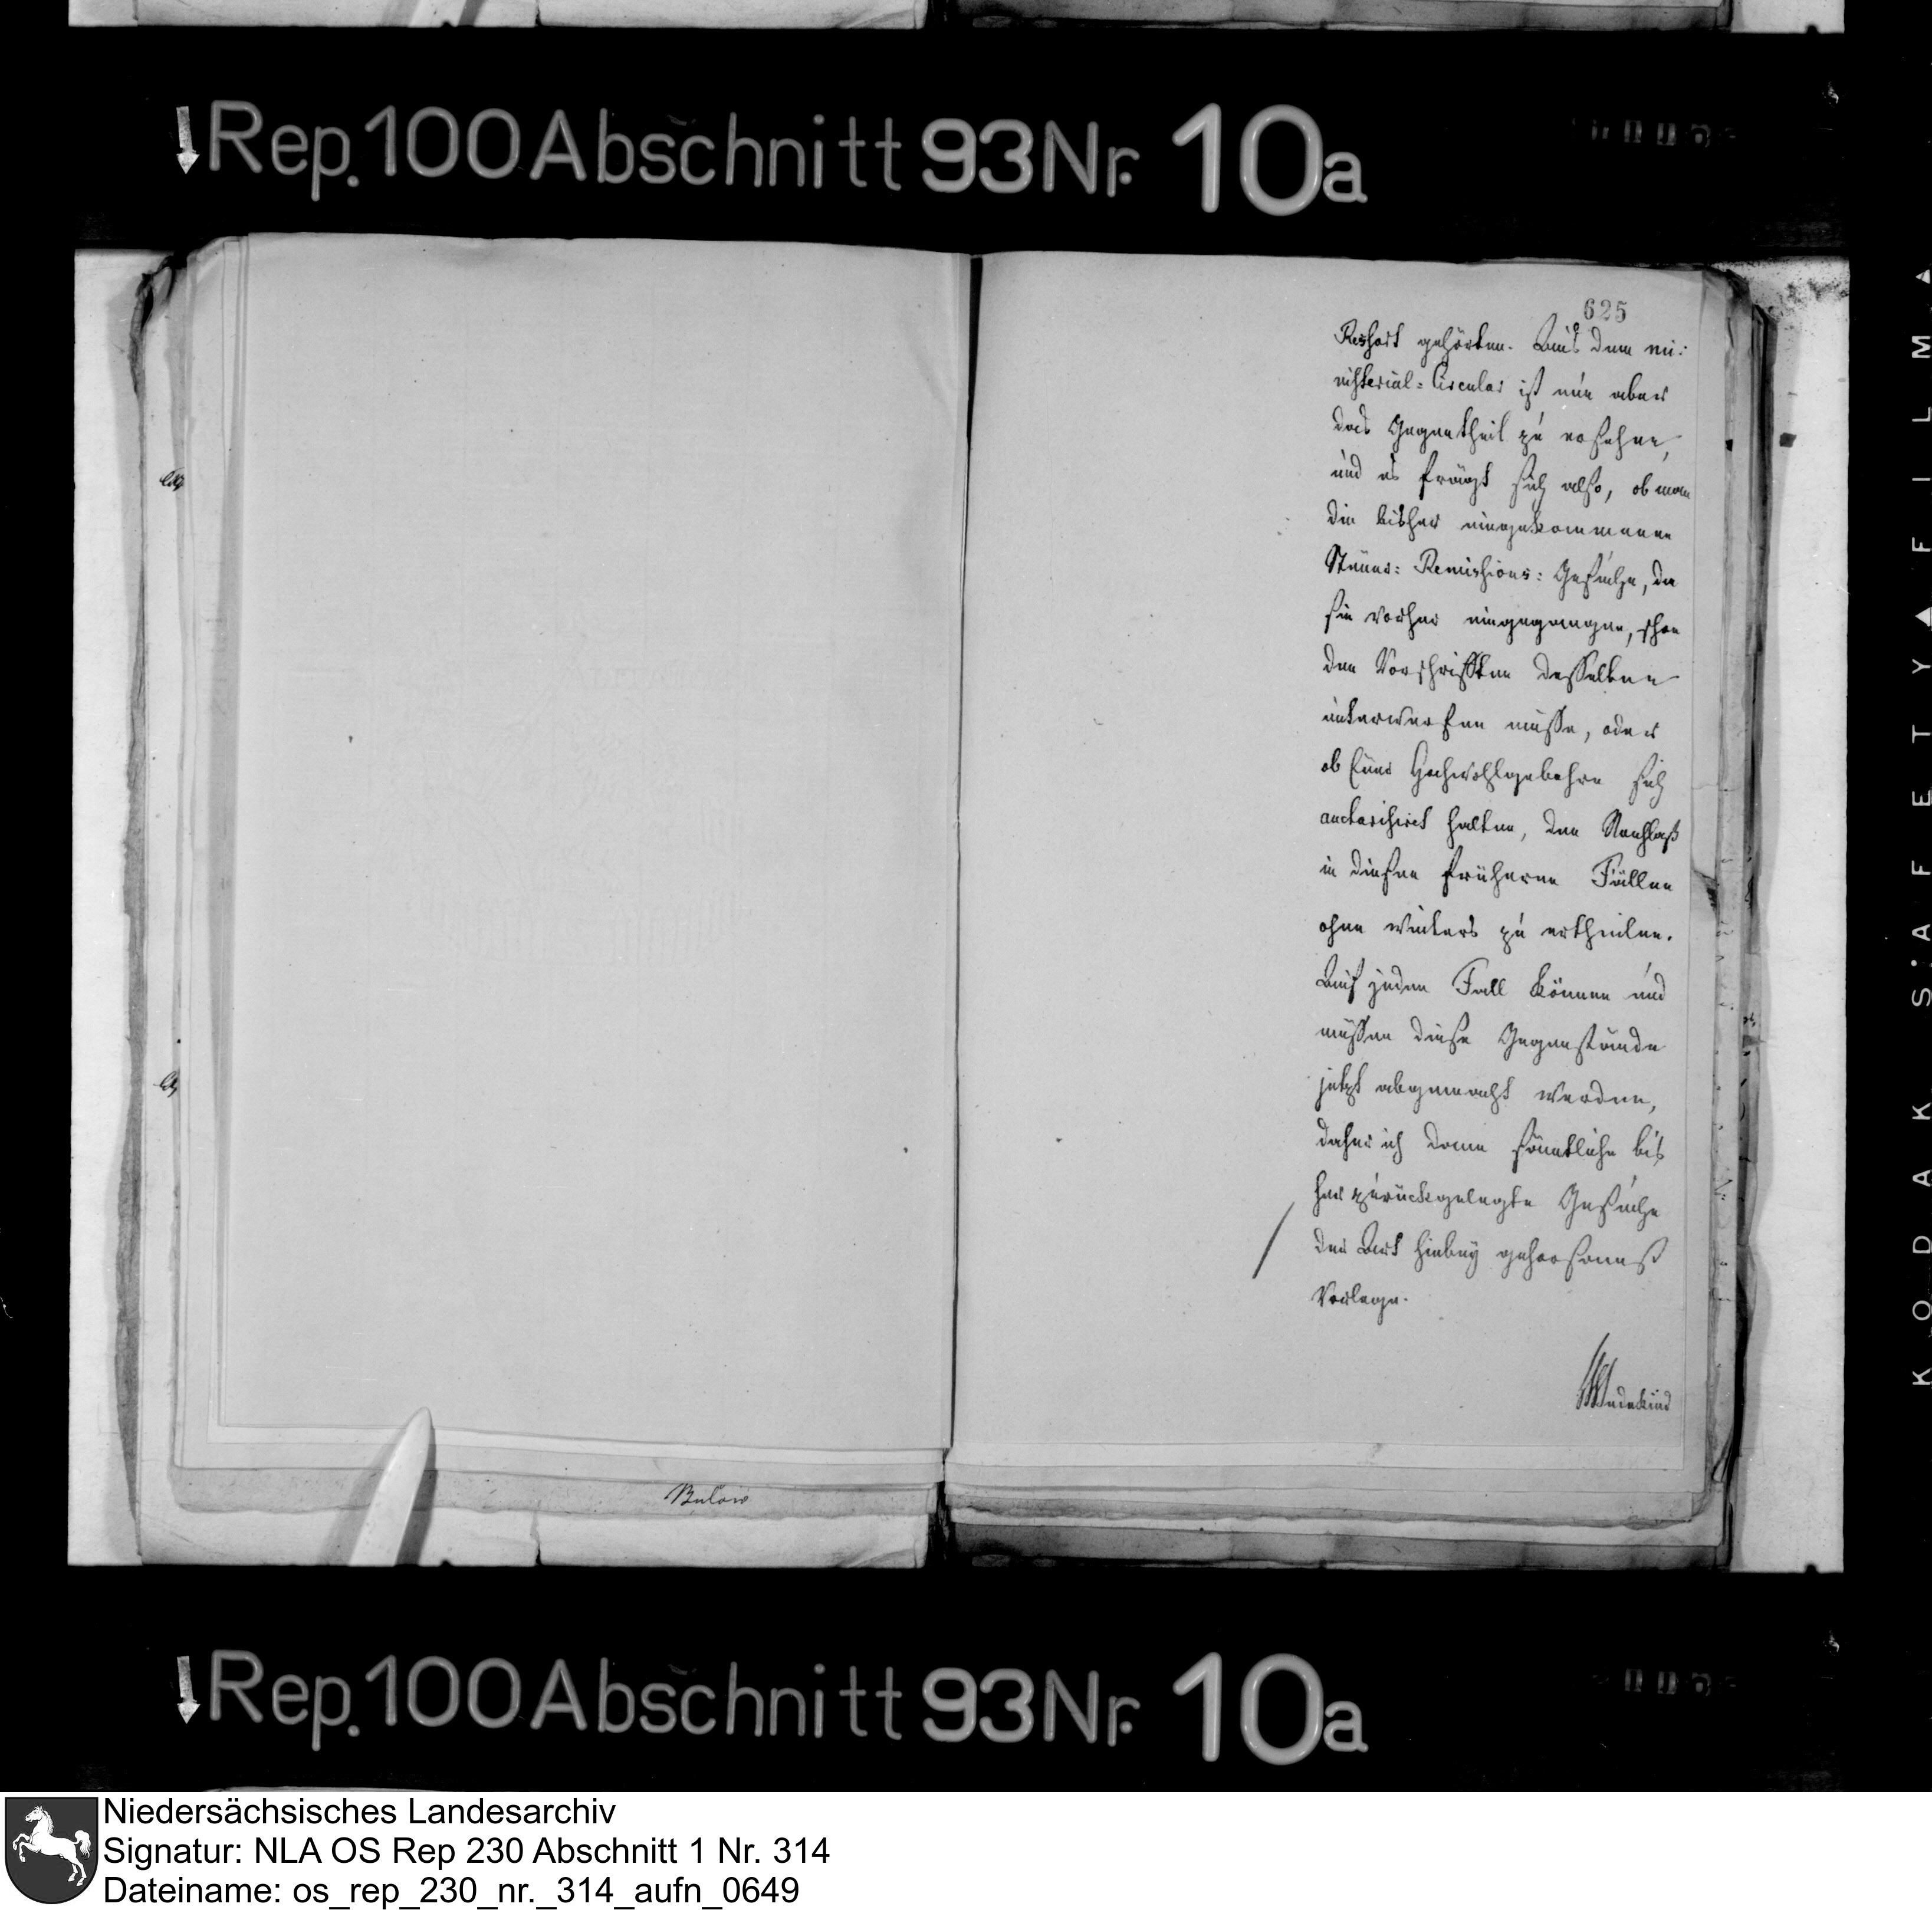 Rep. 100 Abschnitt 93 Nr. 10a
625
Ressort gehörten. Aus dem mi:
nisterial-Circular ist nun aber
das Gegentheil zu ersehen,
und es frägt sich also, ob man
die bisher eingekommenen
Steuer: Remissions: Gesuche, da
sie vorher eingegangen, schon
den Vorschriften desselben
unterwerfen müsse, oder
ob Euer Hochwohlgebohrn sich
auctorisirt halten, den Nachlaß
in diesen früheren Fällen
ohne weiters zu ertheilen.
Auf jeden Fall können und
müssen diese Gegenstände
jetzt abgemacht werden,
daher ich denn sämtliche bis
her zurückgelegte Gesuche
der Art hiebey gehorsamst
Vorlege.
Wedekind
Bülow
Rep. 100 Abschnitt 93 Nr. 10a
KODAK SAFETY FILM
Niedersächsisches Landesarchiv
Signatur: NLA OS Rep 230 Abschnitt 1 Nr. 314
Dateiname: os_rep_230_nr._314_aufn_0649